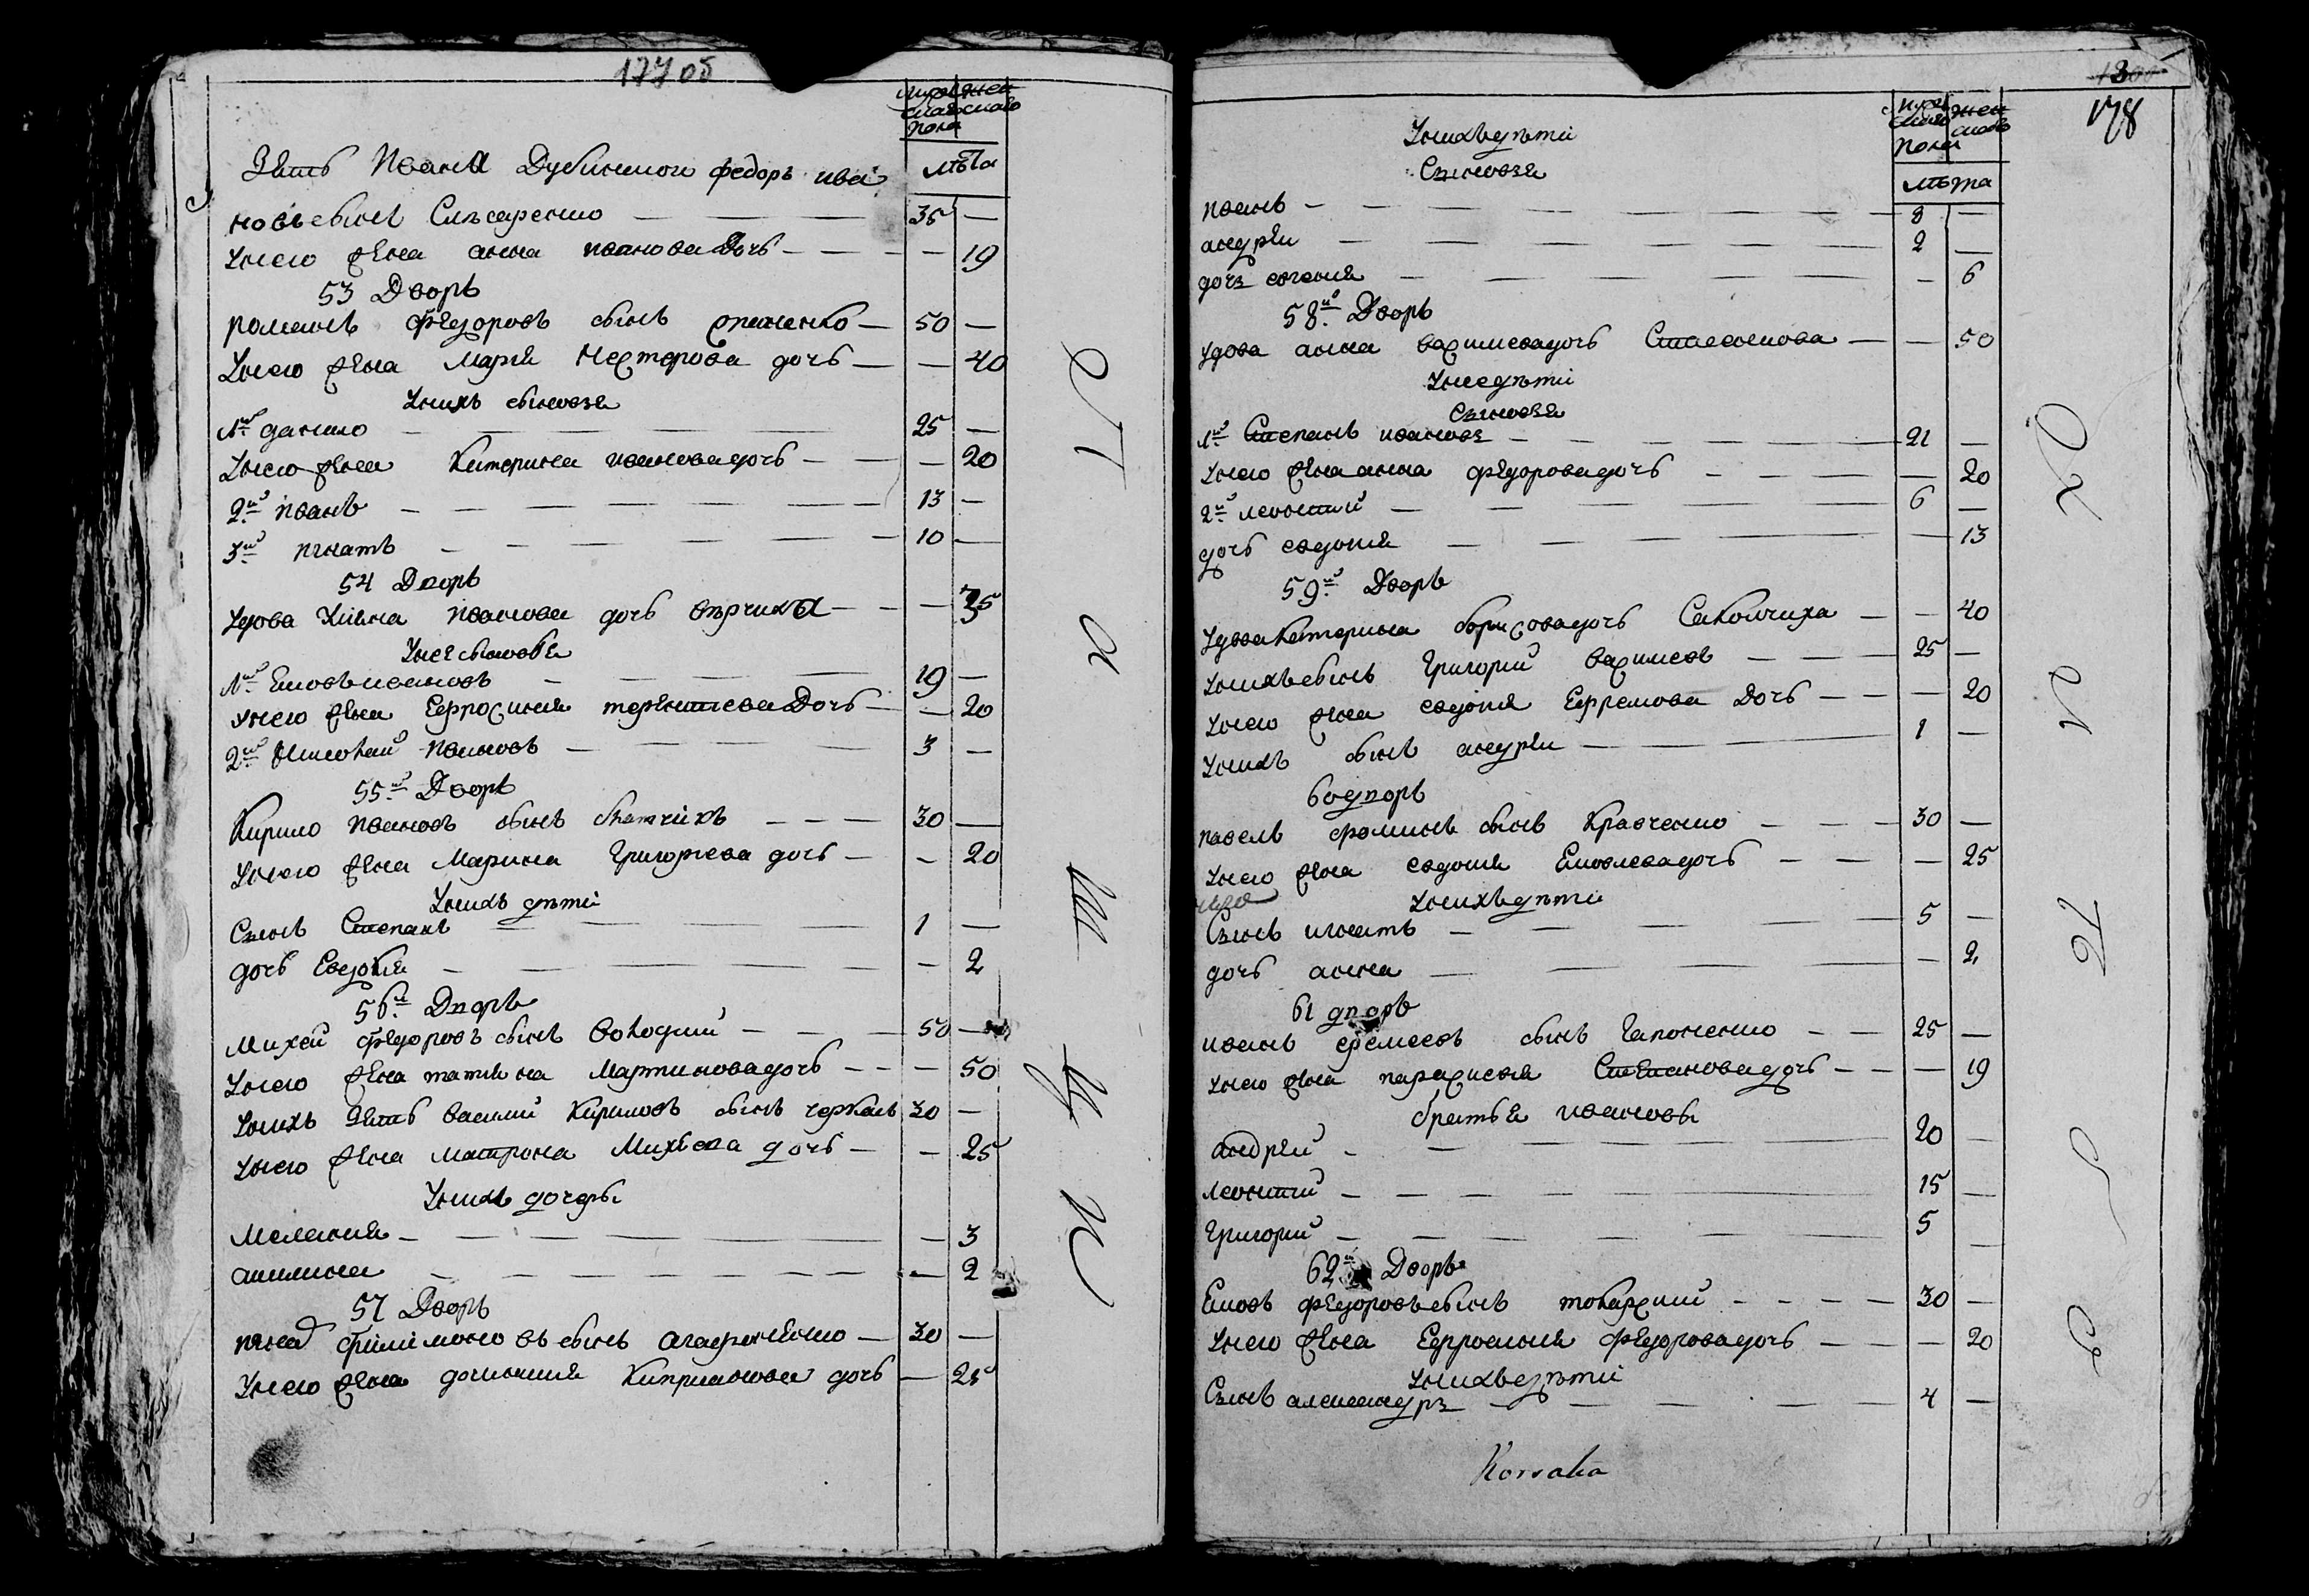 177 об
мужескаго женскаго
пола
лѣта
Зять Ивана Дубинског федоръ ива
новъ сынъ Слѣсаренко — 35 —
Унего жена анна иванова Дочь — — 19
53 Дворъ
романъ федоровъ сынъ — 50 —
Унего жена Марія Нестерова дочь — — 40
Унихъ сыновя
1й данило — 25 —
Унего жена Катерина ивановадочь — — 20
2й иванъ — 13 —
3й игнатъ — 10 —
54 Дворъ
Удова Иванова дочь — — 35
Унея сыновя
1й Яковъ ивановъ — 19 —
унего жена Ефросиния терентиева Дочь — — 20
2й Николай Ивановъ — 3 —
55й Дворъ
Кирило Ивановъ сынъ — 30 —
Унего жена Марина Григорева дочь — — 20
Унихъ дѣти
Сынъ Степанъ — 1 —
дочь Евдокия — — 2
56й Дворъ
Михей федоровъ сынъ — 50 —
Унего жена татияна Мартиновадочь — — 50
Унихъ зять василий Кириловъ сынъ черкасъ 30 —
Унего жена матрона Михѣева дочь — — 25
Унихъ дочеры
Мелания — — 3
акилина — — 2
57 Дворъ
игнад филимоновъ сынъ агафоненко — 30 —
Унего жена Киприанова дочь — 25
178
мужескаго женскаго
пола
лѣта
Унихъ дѣти
Сыновя
иванъ — 8 —
андрѣй — 2 —
дочь евгения — — 6
58й Дворъ
удова анна василиевадочь — — 50
Унея дѣти
Сыновя
1й Степанъ ивановъ — 21 —
Унего жена анна федоровадочь — — 20
2й леонтий — 6 —
дочь евдокия — — 13
59й Дворъ
Удова Катерина борисовадочь — — 40
Унихъ сынъ Григорий василиевъ — 25 —
Унего жена евдокия Ефремова Дочь — — 20
Унихъ сынъ андрѣй — 1 —
60 дворъ
павелъ фоминъ сынъ Кравченко — 30 —
Унего жена евдокия Яковлевадочь — — 25
Унихъ дѣти
Сынъ игнатъ — 5 —
дочь анна — — 2
61 дворъ
иванъ еремеевъ сынъ Гапоненко — 25 —
Унего жена параскевия Степановадочь — — 19
братья ивановы
андрѣй — 20 —
леонтий — 15 —
Григорий — 5 —
62й Дворъ
Яковъ федоровъ сынъ — 30 —
Унего жена Ефросиния федоровадочь — — 20
Унихъ дѣти
Сынъ александръ — 4 —